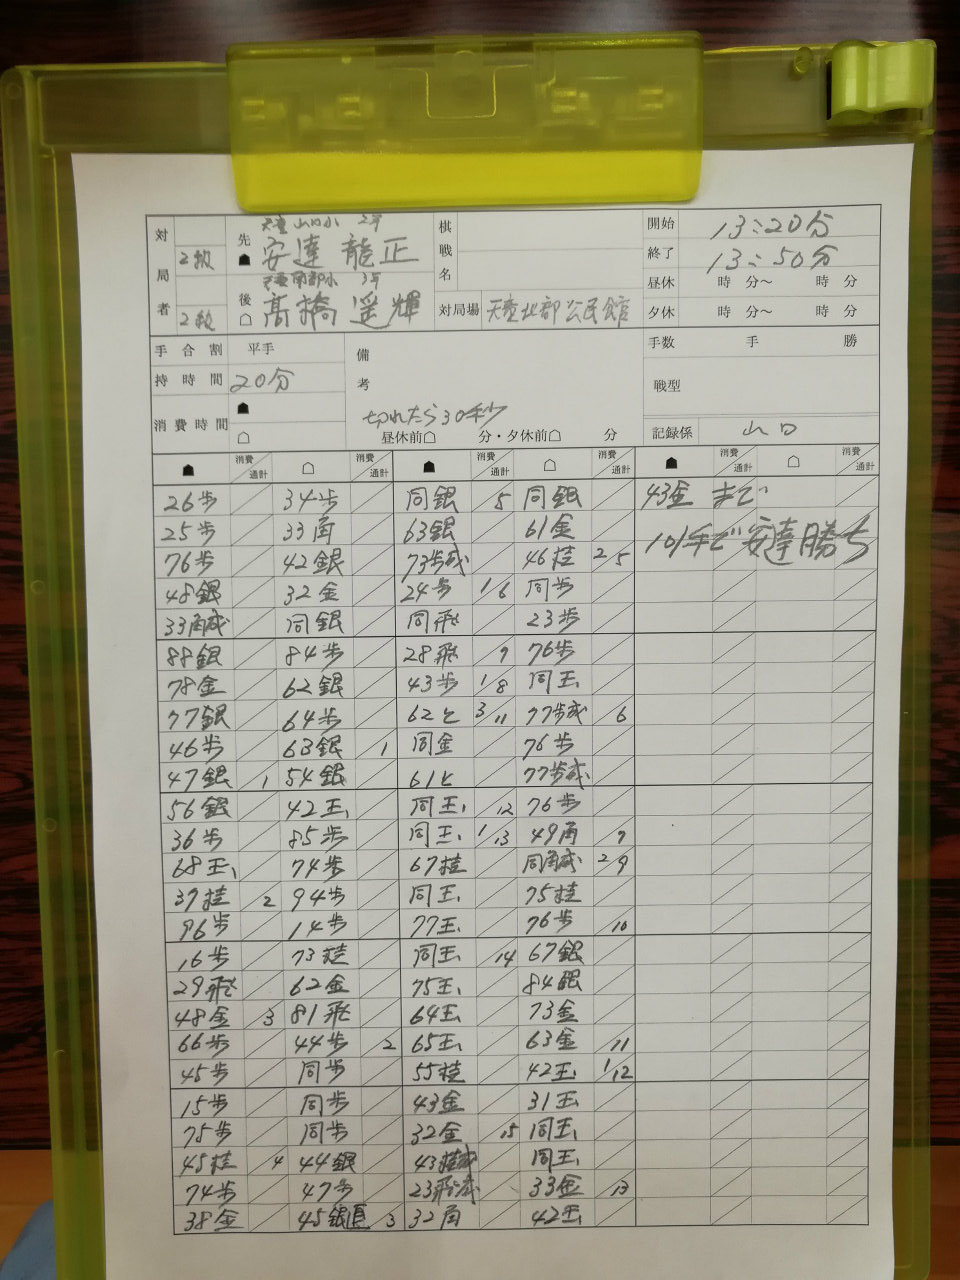 対局者
2級
先 天童山口小 2年
安達 龍正
棋戦名
開始 13:20分
終了 13:50分
2級
後 天童南部小 3年
髙橋 遥輝
対局場 天童北部公民館
昼休 時 分〜 時 分
夕休 時 分〜 時 分
手合割 平手
備考
手数 手 勝
持時間 20分
戦型
消費時間
切れたら30秒
昼休前 分・夕休前 分
記録係 山口
消費 通計 消費 通計 消費 通計 消費 通計 消費 通計 消費 通計
26歩 34歩 同銀 5 同銀 43金 まで
25歩 33角 63銀 61金 101手で安達勝ち
76歩 42銀 73歩成 46桂 2/5
48銀 32金 24歩 1/6 同歩
33角成 同銀 同飛 23歩
88銀 84歩 28飛 7 76歩
78金 62銀 43歩 1/8 同玉
77銀 64歩 62と 3/11 77歩成 6
46歩 63銀 1 同金 76歩
47銀 1 54銀 61と 77歩成
56銀 42玉 同玉 12 76歩
36歩 85歩 同玉 1/13 49角 7
68玉 74歩 67桂 同角成 2/9
37桂 2 94歩 同玉 75桂
96歩 14歩 77玉 76歩 10
16歩 73桂 同玉 14 67銀
29飛 62金 75玉 84銀
48金 3 81飛 64玉 73金
66歩 44歩 2 65玉 63金 11
45歩 同歩 55桂 42玉 1/12
15歩 同歩 43金 31玉
75歩 同歩 32金 15 同玉
45桂 4 44銀 43桂成 同玉
74歩 47歩 23飛成 33金 13
38金 45銀直 3 32角 42玉